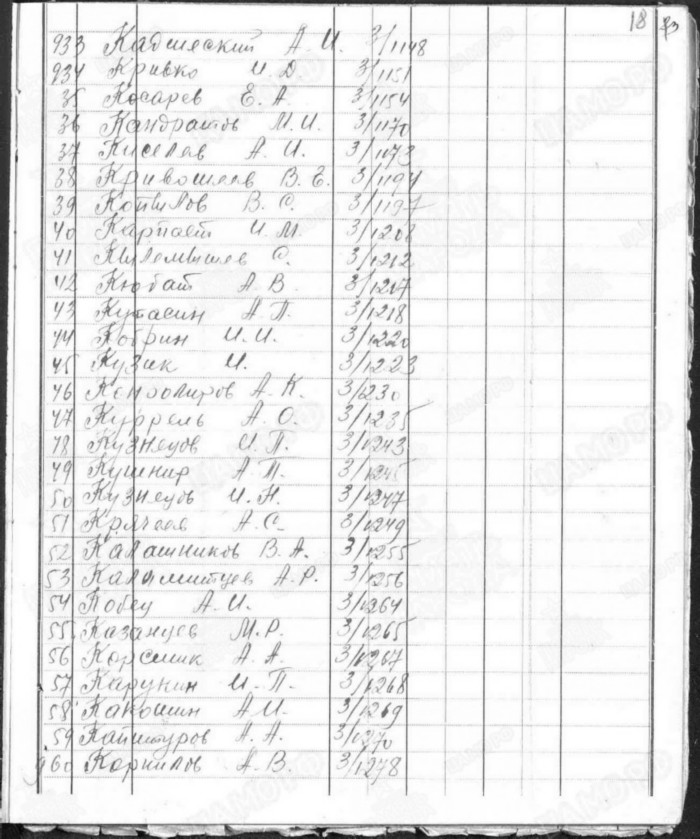 18
933 Кадшеский А. И. 3/1148
934 Кривко И Д 3/1151
35 Косарев Е. А. 3/1154
36 Кандратов М. И. 3/1170
37 Киселев А. И. 3/1173
38 Кривошеев В. Е. 3/1194
39 Копылов В. С. 3/1197
40 Карпает И. М. 3/1208
41 С. 3/1212
42 Кюбат А. В 3/1217
43 Кутасин А П. 3/1218
44 Кобрин И. И. 3/1220
45 Кузик И. 3/1223
46 А. К. 3/1230
47 Куррель А. О. 3/1235
48 Кузнецов И. П. 3/1243
49 Кушнир А. П. 3/1245
50 Кузнецов И. Н. 3/1247
51 А. С. 3/1249
52 Калашников В. А. 3/1255
53 А. Р. 3/1256
54 Кобец А. И. 3/1264
55 Казанцев М. Р. 3/1265
56 А. А. 3/1267
57 Карукин И. П. 3/1268
58 Какошин А И. 3/1269
59 Кайштуров А. А. 3/1270
960 Корнилов А. В. 3/1278